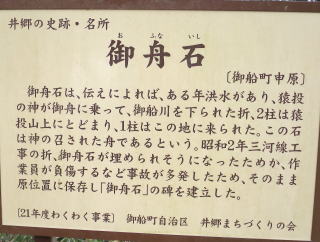 井郷の史跡・名所
お ふな いし
御舟石
〔御船町申原〕
御舟石は、伝えによれば、ある年洪水があり、猿投
の神が御舟に乗って、御船川を下られた折、2柱は猿
投山上にとどまり、1柱はこの地に来られた。この石
は神の召された舟であるという。昭和2年三河線工
事の折、御舟石が埋められそうになったためか、作
業員が負傷するなど事故が多発したため、そのまま
原位置に保存し「御舟石」の碑を建立した。
〔21年度わくわく事業〕 御船町自治区 井郷まちづくりの会